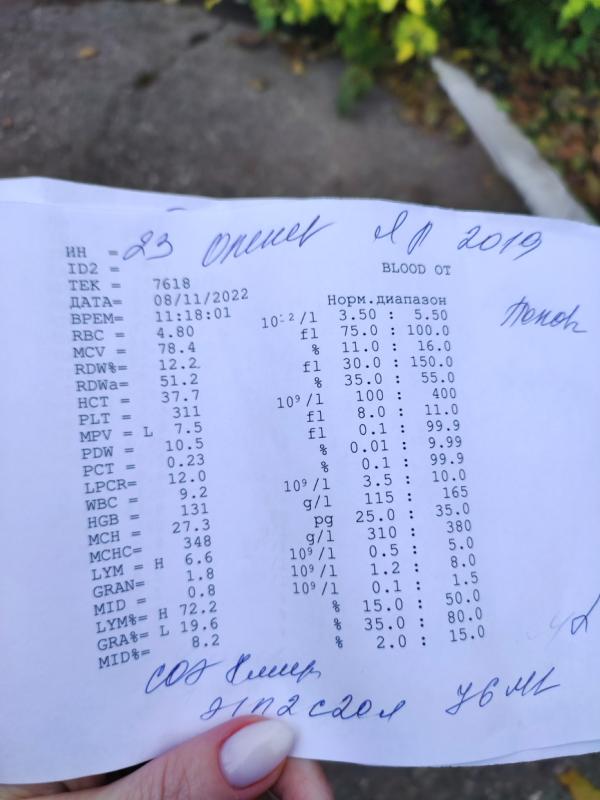 ИН = 23 2019
ID2 = BLOOD ОТ
ТЕК = 7618
ДАТА= 08/11/2022 Норм.диапазон
ВРЕМ= 11:18:01
RBC = 4.80 10¹²/l 3.50 : 5.50
MCV = 78.4 fl 75.0 : 100.0
RDW%= 12.2 % 11.0 : 16.0
RDWa= 51.2 fl 30.0 : 150.0
HCT = 37.7 % 35.0 : 55.0
PLT = 311 10⁹/l 100 : 400
MPV = L 7.5 fl 8.0 : 11.0
PDW = 10.5 fl 0.1 : 99.9
PCT = 0.23 % 0.01 : 9.99
LPCR= 12.0 % 0.1 : 99.9
WBC = 9.2 10⁹/l 3.5 : 10.0
HGB = 131 g/l 115 : 165
MCH = 27.3 pg 25.0 : 35.0
MCHC= 348 g/l 310 : 380
LYM = H 6.6 10⁹/l 0.5 : 5.0
GRAN= 1.8 10⁹/l 1.2 : 8.0
MID = 0.8 10⁹/l 0.1 : 1.5
LYM%= H 72.2 % 15.0 : 50.0
GRA%= L 19.6 % 35.0 : 80.0
MID%= 8.2 % 2.0 : 15.0
СОЭ